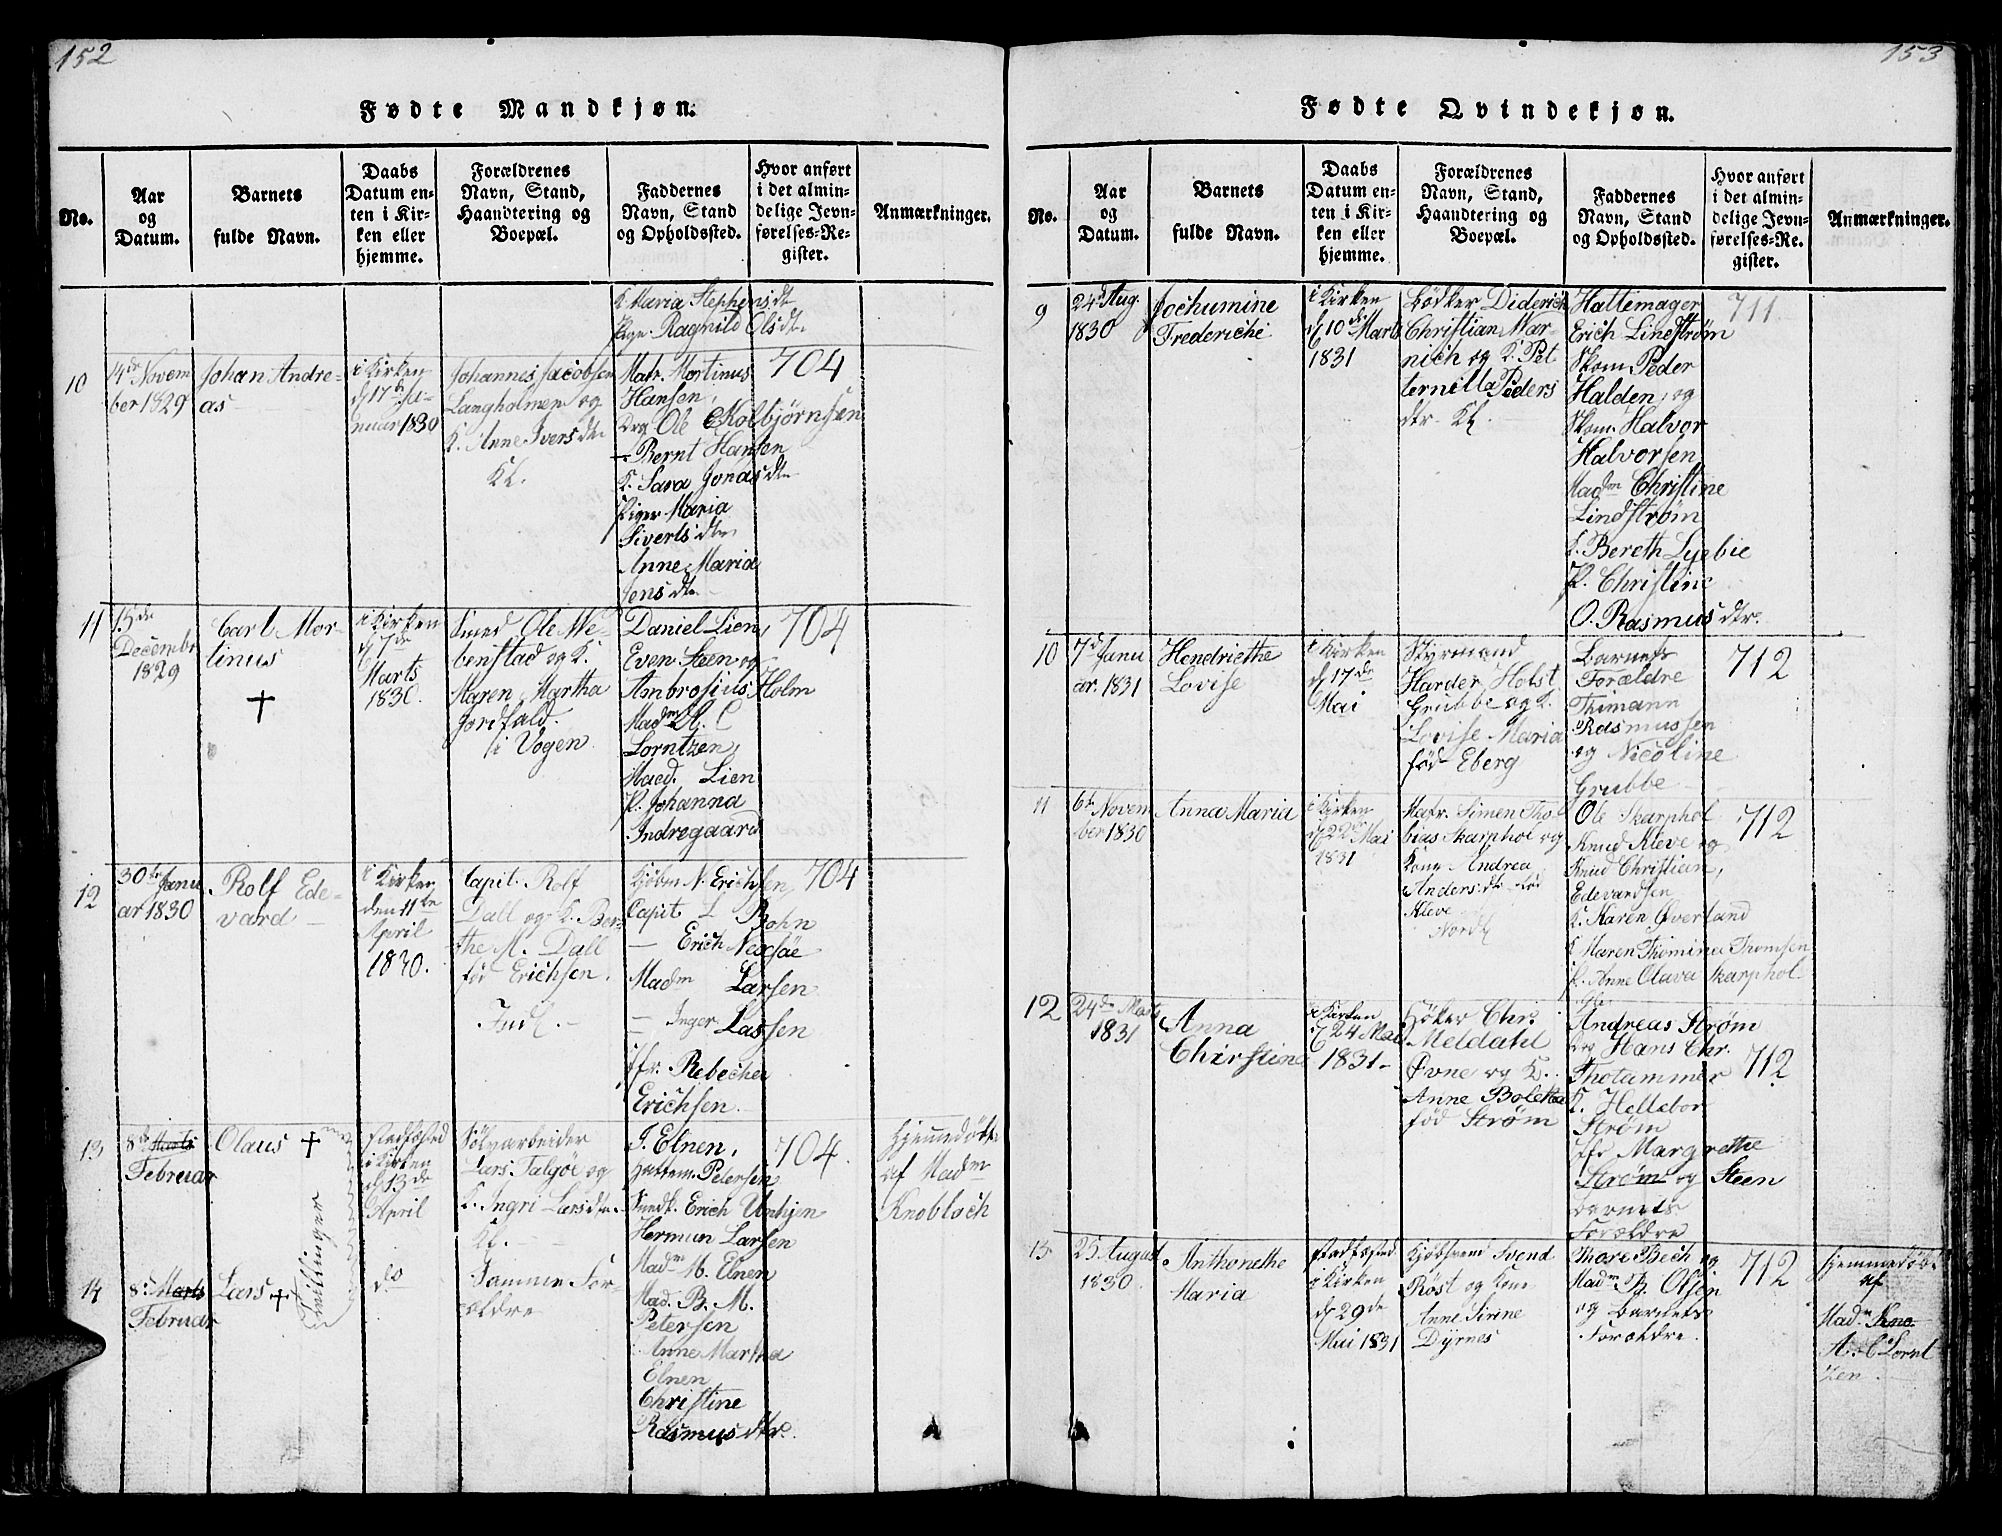 152
Fødte Mandkjøn.
No.
Aar
og
Datum.
Barnets
fulde Navn.
Daabs
Datum en-
ten i Kir-
ken eller
hjemme.
Forældrenes
Navn, Stand,
Haandtering og
Boepæl.
Faddernes
Navn, Stand
og Opholdssted.
Hvor anført
i det almin-
delige Jevn-
førelses-Re-
gister.
Anmærkninger.
K. Maria Stephensdtr
Pige Ragnild Olsdtr
10
14de Novem
ber 1829
Johan Andre-
as
i Kirken
d 17de Ja-
nuar 1830
Johannes Jacobsen
Langholmen og
K. Anne Iversdtr
Kl.
Matr. Mortinus
Hansen,
Drg Ole Kolbjørnsen
— Bernt Hansen
K. Sara Jonasdtr
Piger Maria
Sivertsdtr
Anne Maria
Jensdtr
704
11
15de
Decembr
1829
Carl Mor-
tinus
†
i Kirken
d 7de
Marts
1830.
Smed Ole We-
benstad og K.
Maren Martha
Jordfald.
i Vogen
Daniel Lien,
Even Steen og
Ambrosius Holm
Madm A. C
Lorntzen,
Mad. Lien
P. Johanna
Indregaard
704
12
30te Janu
ar 1830
Rolf Ede-
vard
i Kirken
den 11te
April
1830.
Capit. Rolf
Dall og K. Ber-
the M. Dall
før Erichsen.
Indl.
Kjøbm N. Erichsen
Capit L Bohn
— Erich Nexsøe
Madm Larsen
— Inger Lassen
Jfr. Rebecher
Erichsen.
704
13
8de Marts
Februar
Olaus †
stadfæsted
i Kirken
d 13de
April
Sølvarbeider
Lars Talgøe og
K. Ingri Larsdtr
Kl.
J. Elnen,
Hattem. Petersen
Sundk. Erich Unhjen
Herman Larsen
Madm M. Elnen
Mad. B. M.
Petersen
Anne Martha
Elnen
Christine
Rasmusdtr.
704.
Hjemmedøbt
af Madm
Knobloch
Tvillinger
14
8d Marts
Februar
Lars †
do
Samme For-
ældre
153
Fødte Qvindekjøn.
No.
Aar
og
Datum.
Barnets
fulde Navn.
Daabs
Datum en-
ten i Kir-
ken eller
hjemme.
Forældrenes
Navn, Stand,
Haandtering og
Boepæl.
Faddernes
Navn, Stand
og Opholdssted.
Hvor anført
i det almin-
delige Jevn-
førelses-Re-
gister.
Anmærkninger.
9
24d Aug.
1830
Jochumine
Frederiche
i Kirken
d 10de Marts
1831
Bødker Diderich
Christian War-
nich og K. Pet
ternilla Peders
dtr. Kl.
Hattemager
Erich Linestrøm
Skom Peder
Halden, og
Skom. Halvor
Halvorsen
Madm Christine
Lindstrøm
K. Bereth Lyebie
P. Christine
O. Rasmusdtr.
711
10
7d Janu
ar. 1831
Hendriethe
Lovise
i Kirken
d 17de
Mai
Styrmand
Harder Holst
Grubbe og K.
Lovise Maria
fød Eberg
Barnets
Forældre
Thimann
Rasmussen
og Nicoline
Grubbe
712
11
6te Novem
ber 1830
Anna Maria
i Kirken
d 22d Mai
1831
Matr. Simen Tho
bias Skarphol og
Kone Andrea
Andersdtr fød
Kleve
Nordl
Ole Skarphol
Knud Kleve og
Knud Christian,
Edevardsen
K. Karen Øverland
K Maren Thomina Thomsen
P. Anne Olava Skarphol
712
12
24de Marts
1831
Anna
Christine
i Kirken
d 24 Mai
1831
Høker Chr.
Meldahl
Øvne og K.
Anne Boletta
fød Strøm
Andreas Strøm
Drg Hans Chr.
Thotammer
K. Hellebor
Strøm
Jfr Margrethe
Strøm og Steen
Barnets
Forældre
712
13
25 August
1830
Anthonethe
Maria
stadfæsted
i Kirken
d 29de
Mai 1831
Kjøbsvend Svend
Røst og Kone
Anne Sirine
Dyrnes
Thore Bech og
Madm B. Olsen
og Barnets
Forældre.
712
Hjemmedøbt
af
Madm Kno
A. C Lornt
zen